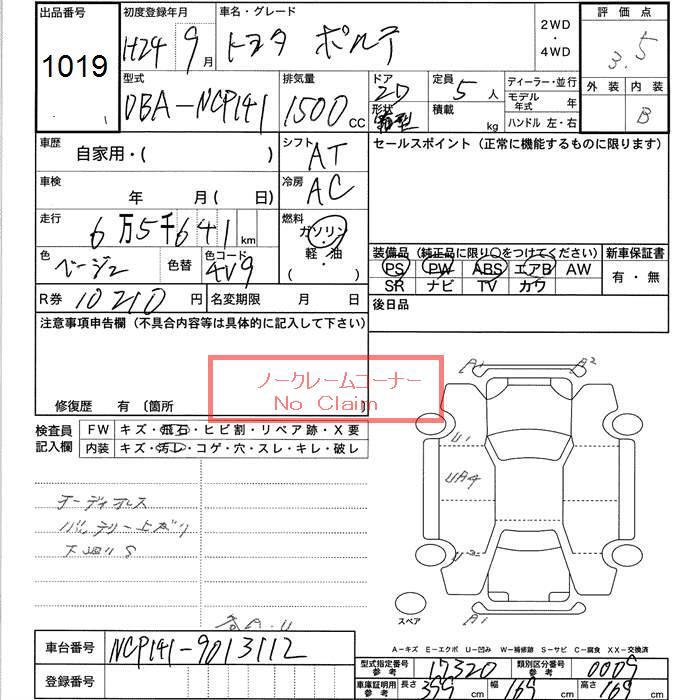 出品番号
1019
初度登録年月
H24 9月
車名・グレード
トヨタ ポルテ
2WD
・
4WD
評価点
3.5
外装 内装
B
型式
DBA-NCP141
排気量
1500cc
ドア
2D
形状
箱型
定員
5人
積載
kg
ディーラー・並行
モデル年式 年
ハンドル 左・右
車歴
自家用・( )
シフト
AT
セールスポイント (正常に機能するものに限ります)
車検
年 月( 日)
冷房
AC
走行
6万5千641km
燃料
ガソリン
・
軽・油
( )
色
ベージュ
色替
色コード
4V9
装備品 (純正品に限り○をつけてください)
PS PW ABS エアB AW
SR ナビ TV カワ
新車保証書
有・無
R券 10210円
名変期限 月 日
後日品
注意事項申告欄 (不具合内容等は具体的に記入して下さい)
ノークレームコーナー
No Claim
修復歴 有 〔箇所 〕
検査員記入欄
FW キズ・飛石・ヒビ割・リペア跡・X要
内装 キズ・汚レ・コゲ・穴・スレ・キレ・破レ
オーディオレス
バッテリー上がり
下廻りS
A1 A2
U1
UA4
U2
A1
スペア
A-キズ E-エクボ U-凹み W-補修跡 S-サビ C-腐食 XX-交換済
車台番号
NCP141-9013112
登録番号
型式指定番号
参考
17320
類別区分番号
参考
0009
車庫証明用
参考
長さ 399cm 幅 169cm 高さ 169cm